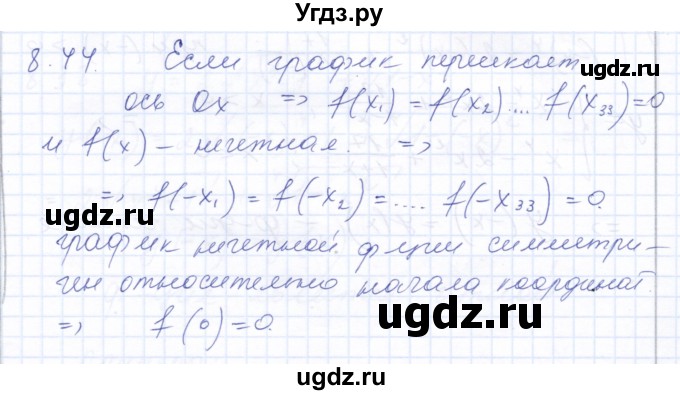 Угдз.ру
8.44. Если график пересекает
ugdz.ru
ось Ox => f(x₁) = f(x₂) ... f(x₃₃) = 0
и f(x) – нечетная. =>
=> f(-x₁) = f(-x₂) = .... f(-x₃₃) = 0.
ugdz.ru
график нечетной ф-ции симметри-
чен относительно начала координат.
=> f(0) = 0.
ugdz.ru
ugdz.ru